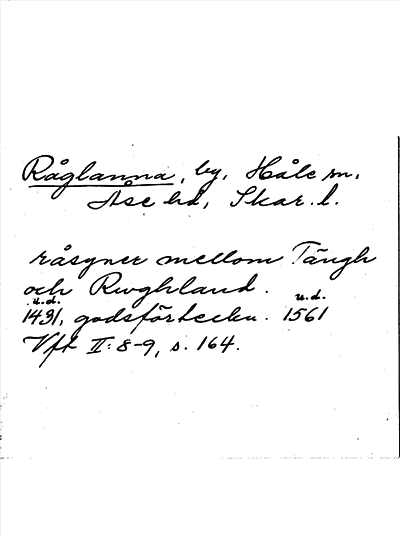 Råglanna, by, Håle sn,
Åse hd, Skar. l.
råsyner mellom Tängh
och Rwghland.
u.d. u.d.
1431, godsförteckn. 1561
Vft II: 8-9, s. 164.